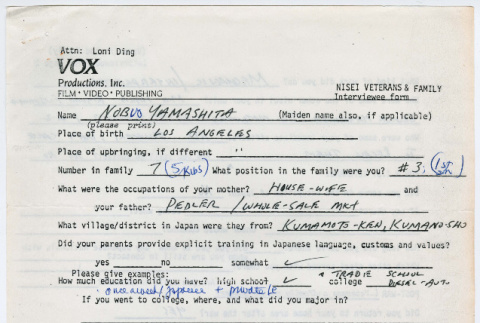 Attn: Loni Ding
VOX
Productions, Inc.
FILM • VIDEO • PUBLISHING
NISEI VETERANS & FAMILY
Interviewee form
Name NOBUO YAMASHITA (Maiden name also, if applicable)
(please print)
Place of birth LOS ANGELES
Place of upbringing, if different "
Number in family 7 (5 kids) What position in the family were you? #3; (1st
What were the occupations of your mother? HOUSE-WIFE and
your father? PEDLER / WHOLE-SALE MKT
What village/district in Japan were they from? KUMAMOTO-KEN, KUMANO-SHO
Did your parents provide explicit training in Japanese language, customs and values?
yes no somewhat ✓
Please give examples: TRADE SCHOOL
How much education did you have? high school ✓ college DIESEL-AUTO
once a week/Japanese +
If you went to college, where, and what did you major in?